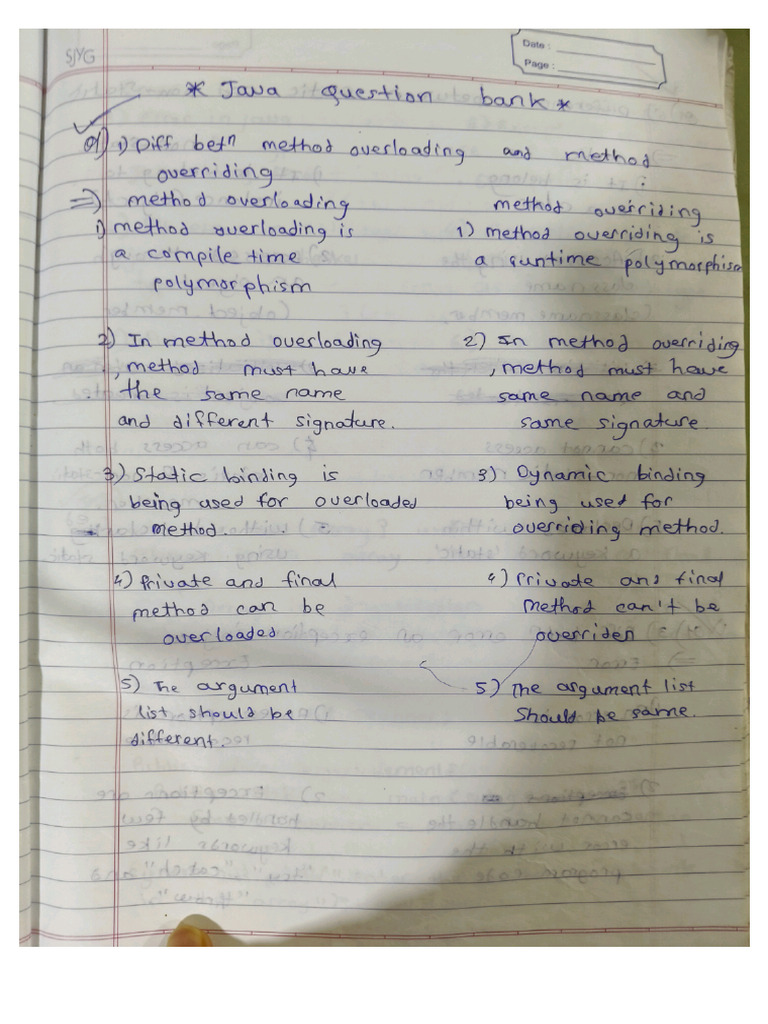 SJYG
Date :
Page :
* Java question bank *
Q1) 1) Diff betn method overloading and method
overriding :
=> method overloading
1) method overloading is
a compile time
polymorphism
2) In method overloading
, method must have
the same name
and different signature.
3) Static binding is
being used for overloaded
method.
4) Private and final
method can be
overloaded
5) The argument
list should be
different.
method overriding
1) method overriding is
a runtime polymorphism
2) In method overriding
, method must have
same name and
same signature.
3) Dynamic binding
being used for
overriding method.
4) Private and final
method can't be
overriden
5) The argument list
should be same.